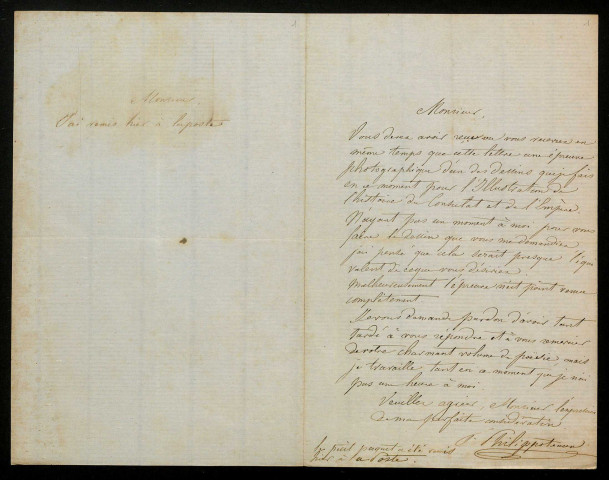 Monsieur,
J'ai remis hier à la poste
Monsieur,
Vous devez avoir reçu ou vous recevrez en
même temps que cette lettre une épreuve
photographique d'un des dessins que je fais
en ce moment pour l'Illustration de
l'histoire du Consulat et de l'Empire.
N'ayant pas un moment à moi pour vous
faire le dessin que vous me demandez
j'ai pensé que cela serait presque l'équi
valent de ce que vous désiriez.
Malheureusement l'épreuve n'est point venue
complètement.
Je vous demande pardon d'avoir tant
tardé à vous répondre et à vous remercier
de votre charmant volume de poésie mais
je travaille tant en ce moment que je n'ai
pas une heure à moi.
Veuillez agréer, Monsieur l'expression
de ma parfaite considération
Philippoteaux
Le petit paquet a été mis
hier à la Poste.